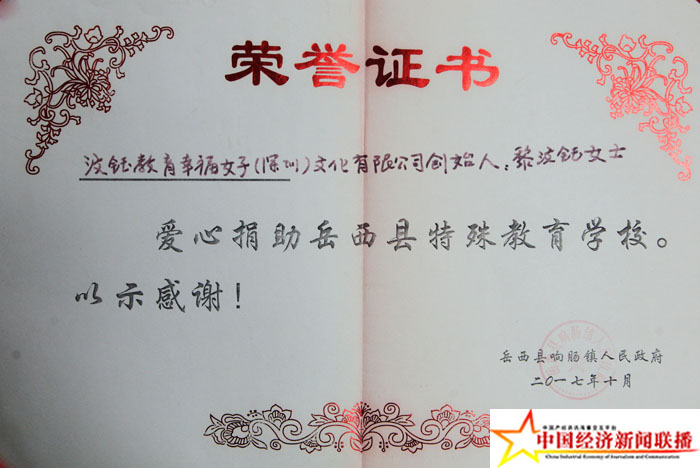 荣誉证书
波钰教育幸福女子(深圳)文化有限公司创始人:黎波钰女士
爱心捐助岳西县特殊教育学校。
以示感谢!
岳西县响肠镇人民政府
二〇一七年十月
中国经济新闻联播
China Industrial Economy of Journalism and Communication